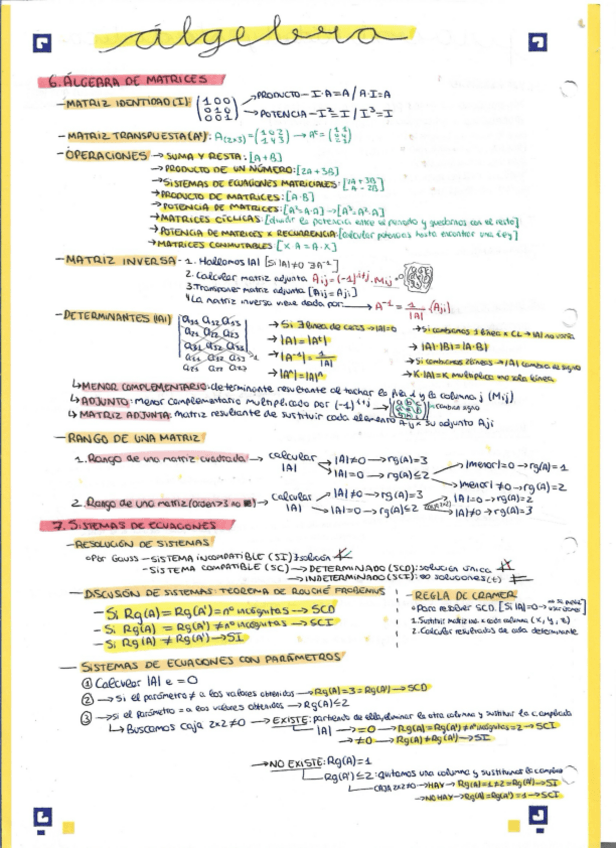 álgebra
6. ÁLGEBRA DE MATRICES
- MATRIZ IDENTIDAD (I) (1 0 0 / 0 1 0 / 0 0 1) → PRODUCTO - I·A = A / A·I = A
→ POTENCIA - I² = I / I³ = I
- MATRIZ TRANSPUESTA (Aᵗ): A(2x3) =
- OPERACIONES → SUMA Y RESTA: [A+B]
→ PRODUCTO DE UN NÚMERO: [2A + 3B]
→ SISTEMAS DE ECUACIONES MATRICIALES:
→ PRODUCTO DE MATRICES: [A·B]
→ POTENCIA DE MATRICES: [A² = A·A] → [A³ = A²·A]
→ MATRICES CÍCLICAS: [dividir la potencia entre el periodo y quedarnos con el resto]
→ POTENCIA DE MATRICES X RECURRENCIA: [calcular potencias hasta encontrar una ley]
→ MATRICES CONMUTABLES [X A = A·X]
- MATRIZ INVERSA - 1. Hallamos |A| [Si |A| ≠ 0 ∃ A⁻¹]
2. Calcular matriz adjunta Aij = (-1)ⁱ⁺ʲ · Mij
3. Transponer matriz adjunta [Aij = Aji]
4. La matriz inversa viene dada por → A⁻¹ = 1/|A| · (Aji)
- DETERMINANTES (|A|)
a11 a12 a13
a21 a22 a23
a31 a32 a33
a11 a12 a13
a21 a22 a23
→ Si ∃ línea de ceros → |A| = 0
→ |A| = |Aᵗ|
→ |A⁻¹| = 1/|A|
→ |Aⁿ| = |A|ⁿ
→ Si cambiamos 1 línea x CL → |A| no varía
→ |A|·|B| = |A·B|
→ Si cambiamos 2 líneas → |A| cambia de signo
→ K·|A| = K multiplica una sola línea
↳ MENOR COMPLEMENTARIO: determinante resultante al tachar la fila i y la columna j (Mij)
↳ ADJUNTO: menor complementario multiplicado por (-1)ⁱ⁺ʲ → cambian signo
↳ MATRIZ ADJUNTA: matriz resultante de sustituir cada elemento Aij x su adjunto Aji
- RANGO DE UNA MATRIZ
1. Rango de una matriz cuadrada → calcular |A| → |A| ≠ 0 → rg(A) = 3
→ |A| = 0 → rg(A) ≤ 2 → |menor| = 0 → rg(A) = 1
→ |menor| ≠ 0 → rg(A) = 2
2. Rango de una matriz (orden > 3 no) → calcular |A| → |A| ≠ 0 → rg(A) = 3
→ |A| = 0 → rg(A) ≤ 2 → |A| = 0 → rg(A) = 2
→ |A| ≠ 0 → rg(A) = 3
7. SISTEMAS DE ECUACIONES
- RESOLUCIÓN DE SISTEMAS
Por Gauss - SISTEMA INCOMPATIBLE (SI) ∄ solución
- SISTEMA COMPATIBLE (SC) → DETERMINADO (SCD): solución única
→ INDETERMINADO (SCI): ∞ soluciones (t)
- DISCUSIÓN DE SISTEMAS: TEOREMA DE ROUCHÉ FROBENIUS
- Si Rg(A) = Rg(A') = nº incógnitas → SCD
- Si Rg(A) = Rg(A') ≠ nº incógnitas → SCI
- Si Rg(A) ≠ Rg(A') → SI
- REGLA DE CRAMER
Para resolver SCD. [Si |A| = 0 → no se puede]
1. Sustituir matriz x cada columna (x, y, z)
2. Calcular resultados de cada determinante
- SISTEMAS DE ECUACIONES CON PARÁMETROS
① Calcular |A| e = 0
② → Si el parámetro ≠ a los valores obtenidos → Rg(A) = 3 = Rg(A') → SCD
③ → Si el parámetro = a los valores obtenidos → Rg(A) ≤ 2
↳ Buscamos caja 2x2 ≠ 0 → EXISTE: partiendo de ella, eliminar la otra columna y sustituir la ampliada
|A| → = 0 → Rg(A) = Rg(A') ≠ nº incógnitas = 2 → SCI
→ ≠ 0 → Rg(A) ≠ Rg(A') → SI
→ NO EXISTE: Rg(A) = 1
Rg(A') ≤ 2: Quitamos una columna y sustituimos la
CAJA 2x2 ≠ 0 → HAY → Rg(A) = 1 ≠ 2 = Rg(A') → SI
→ NO HAY → Rg(A) = Rg(A') = 1 → SCI